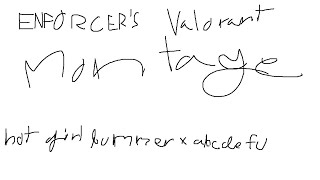 ENFORCER'S Valorant
Montage
hot girl bummer x abcdefu